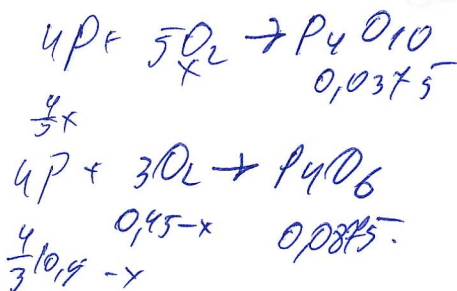 4P + 5O2 → P4O10
x
0,0375
4/5 x
4P + 3O2 → P4O6
0,45-x
0,0875.
4/3 (0,4 -x